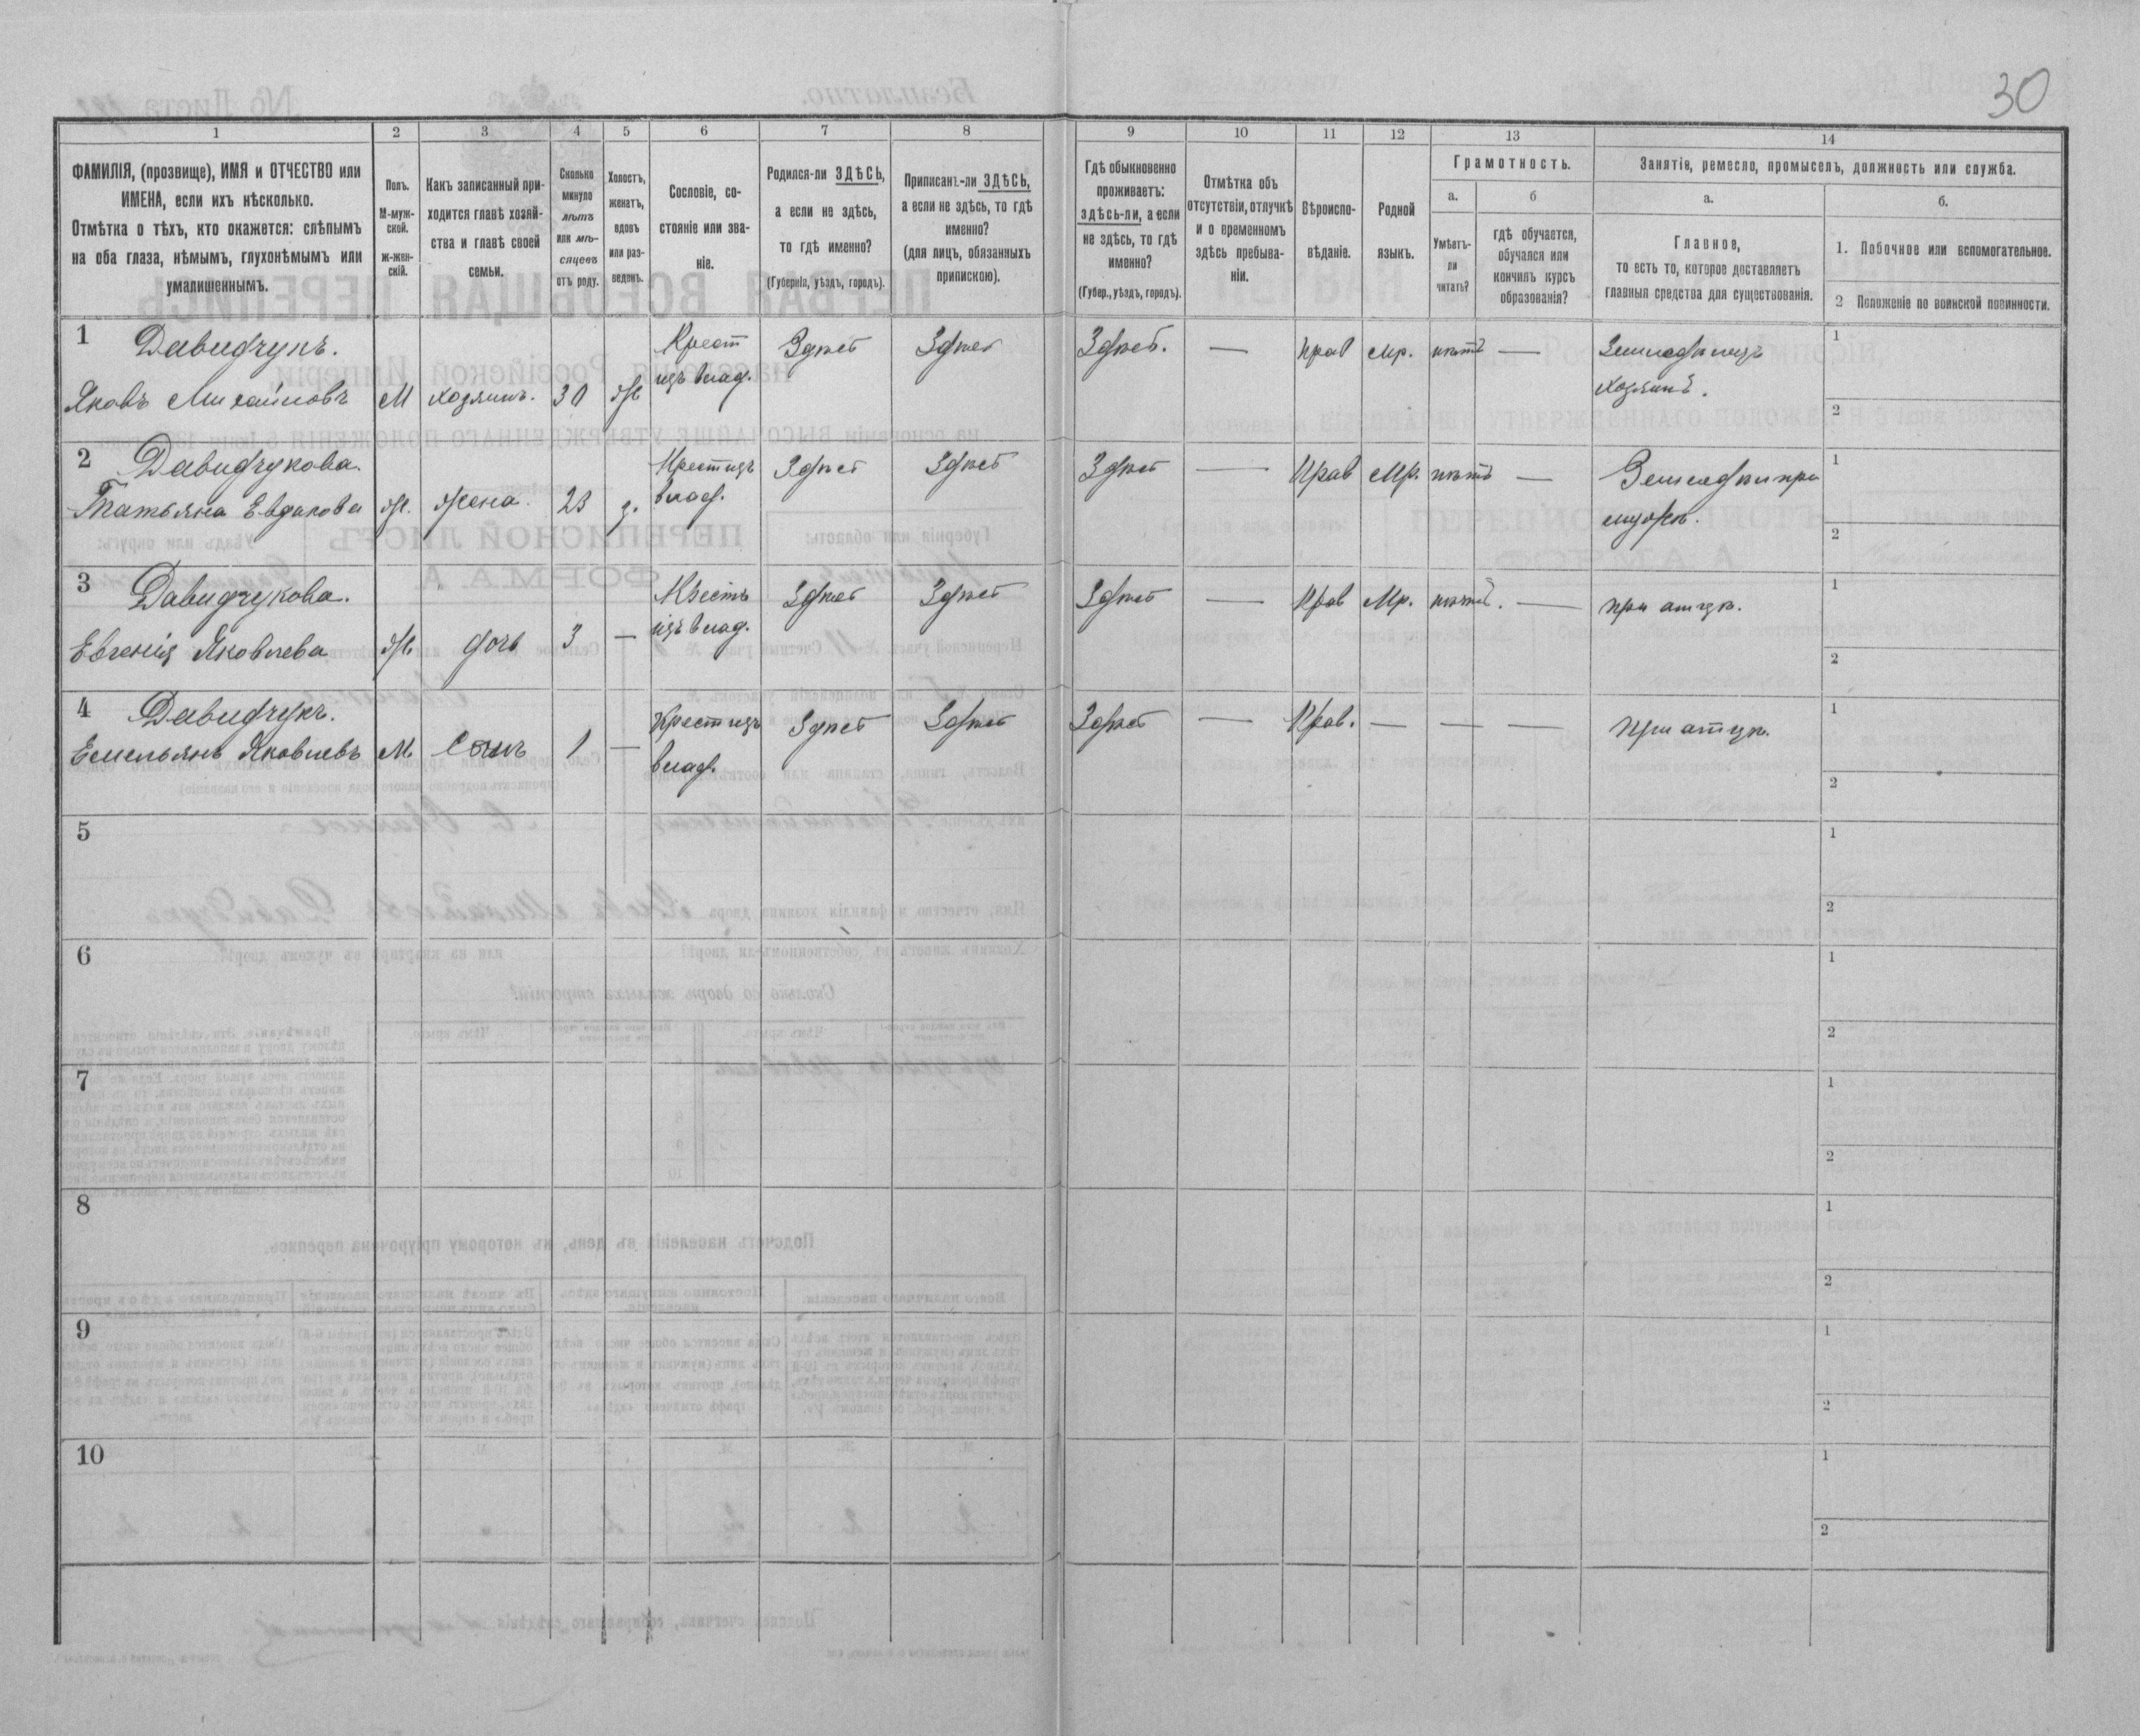 30
1 2 3 4 5 6 7 8 9 10 11 12 13 14
ФАМИЛІЯ, (прозвище), ИМЯ и ОТЧЕСТВО или
ИМЕНА, если ихъ нѣсколько.
Отмѣтка о тѣхъ, кто окажется: слѣпымъ
на оба глаза, нѣмымъ, глухонѣмымъ или
умалишеннымъ.
Полъ.
М-муж-
ской.
ж-жен-
скій.
Какъ записанный при-
ходится главѣ хозяй-
ства и главѣ своей
семьи.
Сколько
минуло
лѣтъ
или мѣ-
сяцевъ
отъ роду.
Холостъ,
женатъ,
вдовъ
или раз-
веденъ.
Сословіе, со-
стояніе или зва-
ніе.
Родился-ли ЗДѢСЬ,
а если не здѣсь,
то гдѣ именно?
(Губернія, уѣздъ, городъ).
Приписанъ-ли ЗДѢСЬ,
а если не здѣсь, то гдѣ
именно?
(для лицъ, обязанныхъ
припискою).
Гдѣ обыкновенно
проживаетъ:
здѣсь-ли, а если
не здѣсь, то гдѣ
именно?
(Губер., уѣздъ, городъ).
Отмѣтка объ
отсутствіи, отлучкѣ
и о временномъ
здѣсь пребыва-
ніи.
Вѣроиспо-
вѣданіе.
Родной
языкъ.
Грамотность.
а.
Умѣетъ-
ли
читать?
б
гдѣ обучается,
обучался или
кончилъ курсъ
образованія?
Занятіе, ремесло, промыселъ, должность или служба.
а.
Главное,
то есть то, которое доставляетъ
главныя средства для существованія.
б.
1. Побочное или вспомогательное.
2 Положеніе по воинской повинности.
1 Давидчукъ. Крест Здѣсь Здѣсь Здѣсь. — прав мр. нѣтъ — Земледѣлецъ 1
Яковъ Михайловъ М хозяинъ. 30 ж изъ влад. хозяинъ. 2
2 Давидчукова. Крест изъ Здѣсь Здѣсь Здѣсь — Прав Мр. нѣтъ — Земледѣл при 1
Татьяна Ж. жена. 23 з. влад. мужѣ. 2
3 Давидчукова. Крестъ Здѣсь Здѣсь Здѣсь — Прав Мр. нѣтъ. — при отцѣ. 1
Евгенія Яковлева Ж дочь 3 — изъ влад. 2
4 Давидчукъ. Крест изъ Здѣсь Здѣсь Здѣсь — Прав. — — — при отцѣ. 1
Емельянъ Яковлевъ М Сынъ 1 — влад. 2
5 1
2
6 1
2
7 1
2
8 1
2
9 1
2
10 1
2